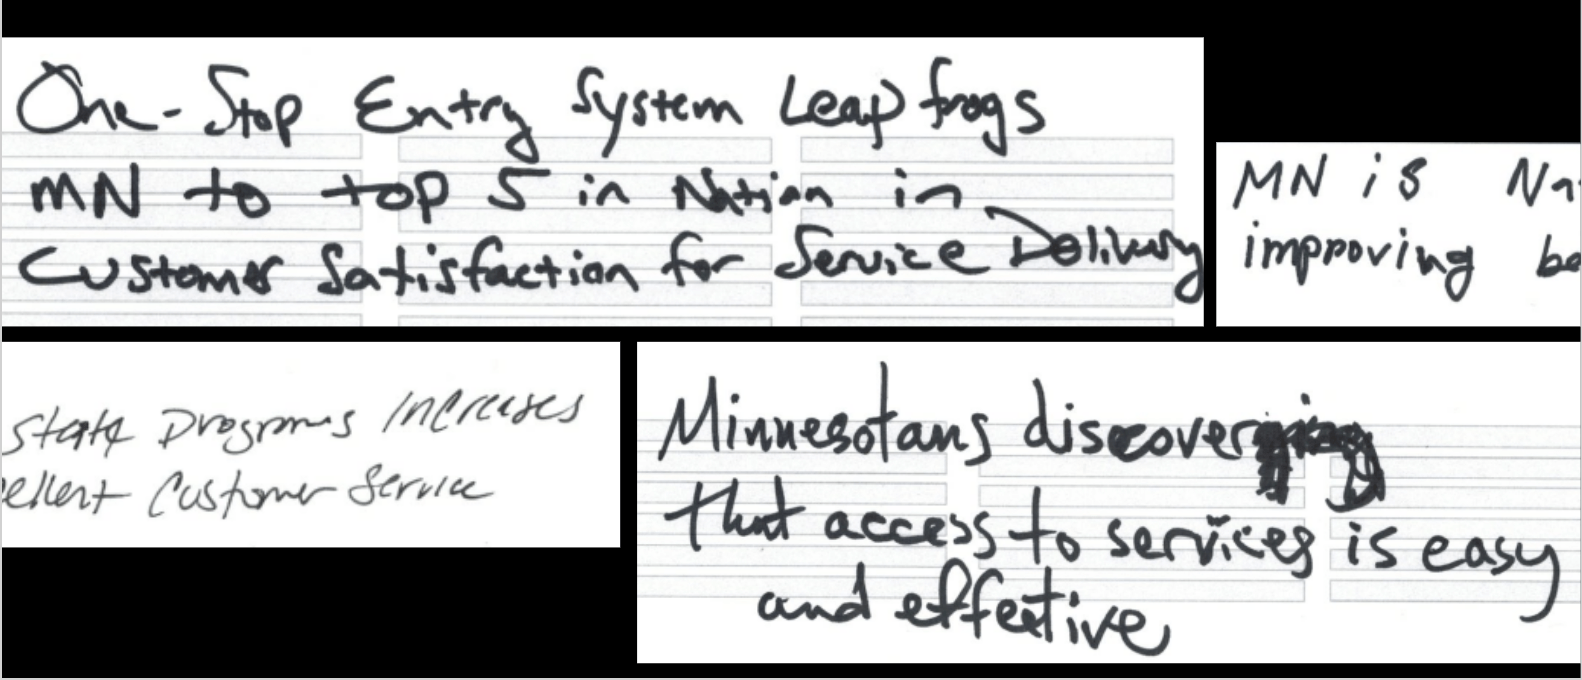 One-Stop Entry System Leapfrogs
MN to top 5 in Nation in
Customer Satisfaction for Service Delivery
MN is
improving
State Programs Increases
Customer Service
Minnesotans discovering
that access to services is easy
and effective